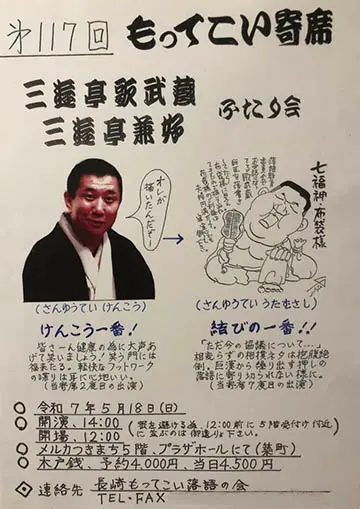 第117回 もってこい寄席
三遊亭歌武蔵
三遊亭兼好
ふたり会
オレが
描いたんだぞー
七福神・布袋様
(さんゆうてい けんこう)
けんこう一番!
皆さーん健康の為に大声あ
げて笑いましょう!笑う門には
福来たる。軽快なフットワーク
の喋りは耳に心地いい。
(当寄席2度目の出演)
(さんゆうてい うたむさし)
結びの一番!!
「ただ今の協議について…」
相変らずの相撲ネタは抱腹絶
倒。巨漢から繰り出す押しの
落語に寄り切られない様に。
(当寄席7度目の出演)
○ 令和7年5月18日(日)
○ 開演、14:00
○ 開場、12:00
(密を避ける為、12:00前に5階受付け付近
に並ぶのは御遠りょ下さい。)
◎ メルカつきまち5階、プラザホールにて(築町)
◎ 木戸銭、予約4.000円、当日4.500円
◎ 連絡先 長崎もってこい落語の会
TEL・FAX